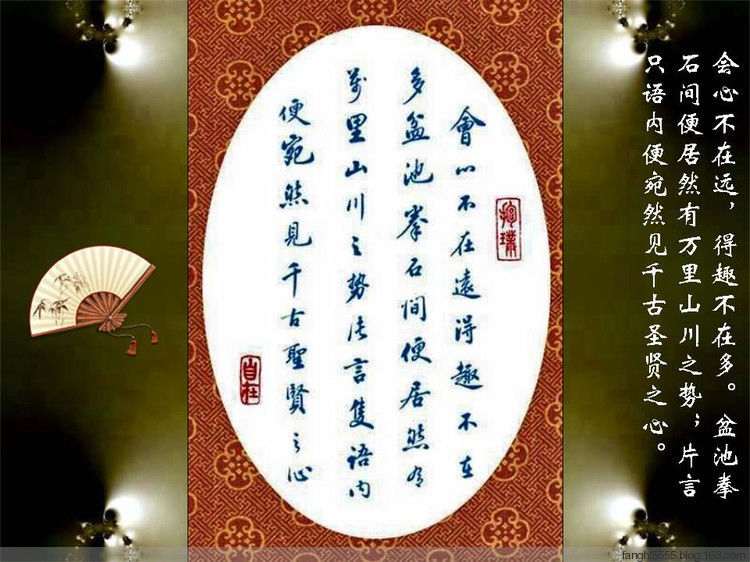 会心不在远，得趣不在多。盆池拳
石间便居然有万里山川之势；片言
只语内便宛然见千古圣贤之心。
抱璞
會心不在遠得趣不在
多盆池拳石間便居然有
萬里山川之勢片言隻語内
便宛然見千古聖賢之心
自在
fanghl5555.blog.163.com